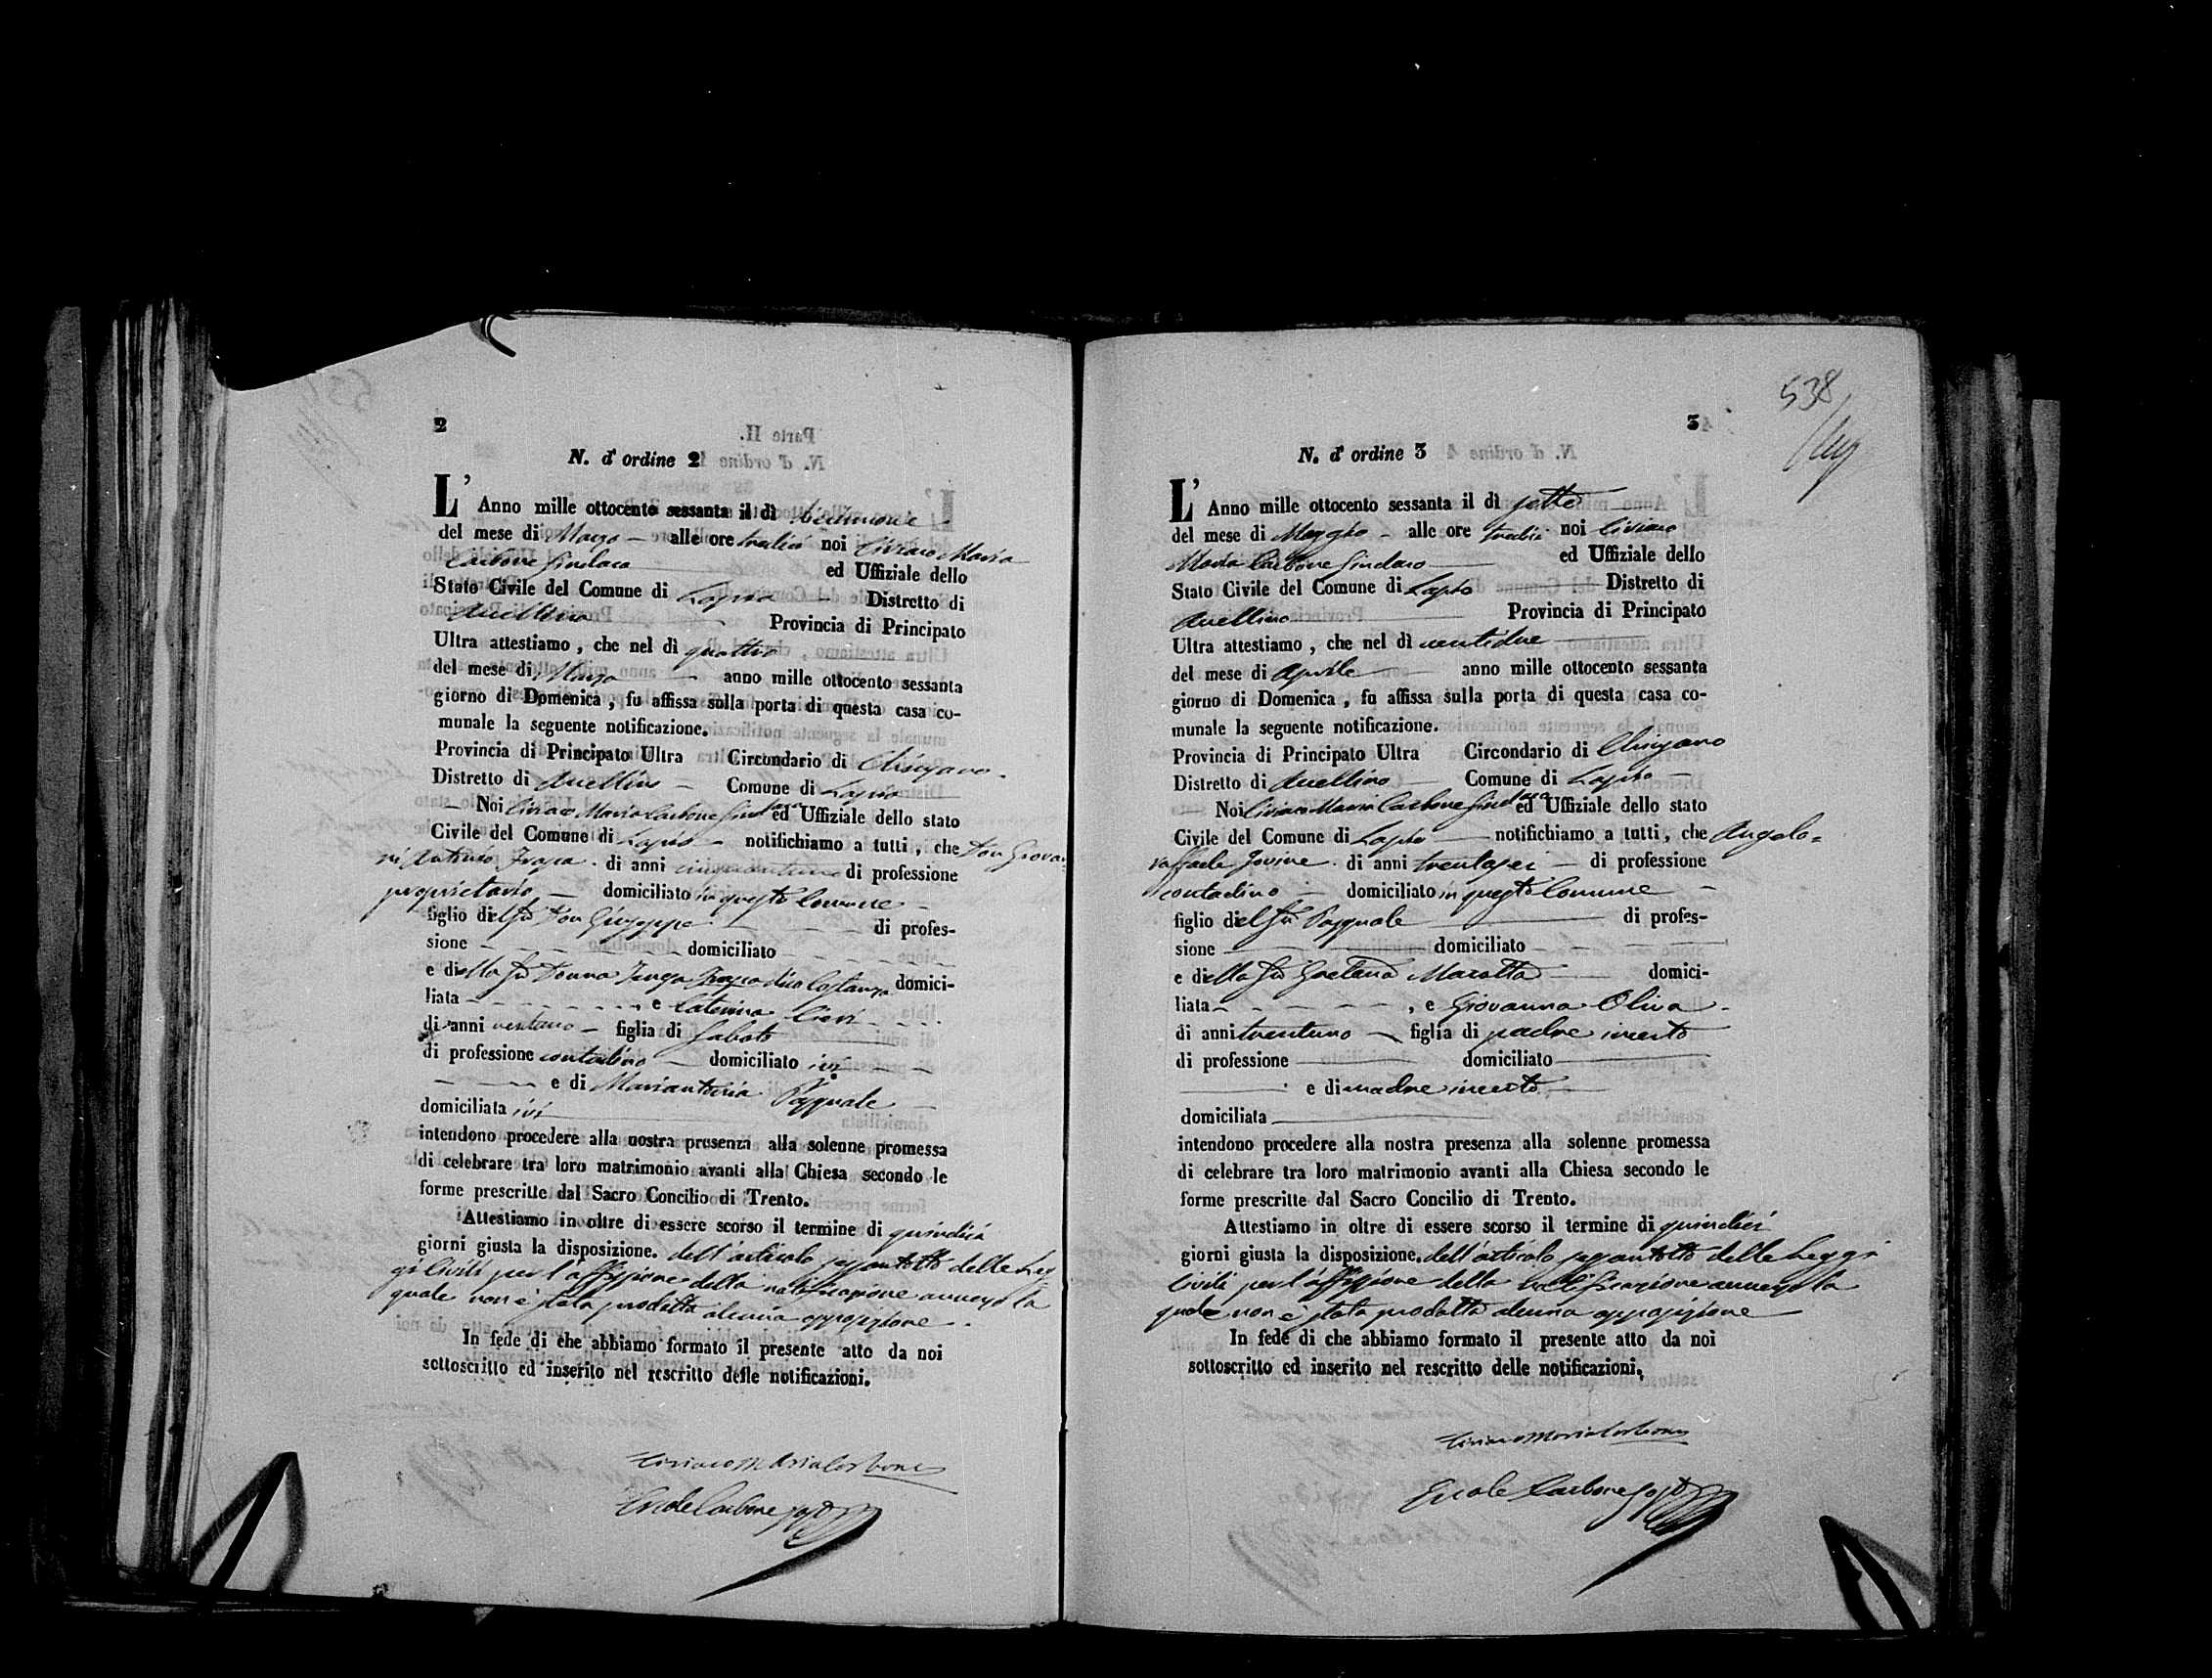 2
N. d' ordine 2
L' Anno mille ottocento sessanta il dì diciannove
del mese di Marzo alle ore tredici noi Ciriaco Maria
Carbone Sindaco ed Uffiziale dello
Stato Civile del Comune di Lapio Distretto di
Avellino Provincia di Principato
Ultra attestiamo , che nel dì quattro
del mese di Marzo anno mille ottocento sessanta
giorno di Domenica , fu affissa sulla porta di questa casa co-
munale la seguente notificazione.
Provincia di Principato Ultra Circondario di Chiusano
Distretto di Avellino Comune di Lapio
Noi Ciriaco Maria Carbone Sindaco ed Uffiziale dello stato
Civile del Comune di Lapio notifichiamo a tutti , che Don Giovan
ni Antonio di anni di professione
proprietario domiciliato in questo Comune
figlio del fu Don Giuseppe di profes-
sione domiciliato
e della fu Donna domici-
liata e Caterina
di anni ventuno figlia di Sabato
di professione contadino domiciliato ivi
e di Mariantonia Pasquale
domiciliata ivi
intendono procedere alla nostra presenza alla solenne promessa
di celebrare tra loro matrimonio avanti alla Chiesa secondo le
forme prescritte dal Sacro Concilio di Trento.
Attestiamo in oltre di essere scorso il termine di quindici
giorni giusta la disposizione. dell'articolo sessantotto delle Leg
gi Civili per l'affissione della notificazione avverso la
quale non è stata prodotta alcuna opposizione.
In fede di che abbiamo formato il presente atto da noi
sottoscritto ed inserito nel rescritto delle notificazioni.
Ciriaco Maria Carbone
Ercole Carbone
538
3
N. d' ordine 3
L' Anno mille ottocento sessanta il dì sette
del mese di Maggio alle ore tredici noi Ciriaco
Maria Carbone Sindaco ed Uffiziale dello
Stato Civile del Comune di Lapio Distretto di
Avellino Provincia di Principato
Ultra attestiamo , che nel dì ventidue
del mese di Aprile anno mille ottocento sessanta
giorno di Domenica , fu affissa sulla porta di questa casa co-
munale la seguente notificazione.
Provincia di Principato Ultra Circondario di Chiusano
Distretto di Avellino Comune di Lapio
Noi Ciriaco Maria Carbone Sindaco ed Uffiziale dello stato
Civile del Comune di Lapio notifichiamo a tutti , che Angelo=
raffaele Iovine di anni trentasei di professione
contadino domiciliato in questo Comune
figlio del fu Pasquale di profes-
sione domiciliato
e della fu Gaetana Marotta domici-
liata , e Giovanna Oliva
di anni trentuno figlia di padre incerto
di professione domiciliato
e di madre incerta
domiciliata
intendono procedere alla nostra presenza alla solenne promessa
di celebrare tra loro matrimonio avanti alla Chiesa secondo le
forme prescritte dal Sacro Concilio di Trento.
Attestiamo in oltre di essere scorso il termine di quindici
giorni giusta la disposizione. dell'articolo sessantotto delle Leggi
Civili per l'affissione della notificazione avverso la
quale non è stata prodotta alcuna opposizione
In fede di che abbiamo formato il presente atto da noi
sottoscritto ed inserito nel rescritto delle notificazioni.
Ciriaco Maria Carbone
Ercole Carbone